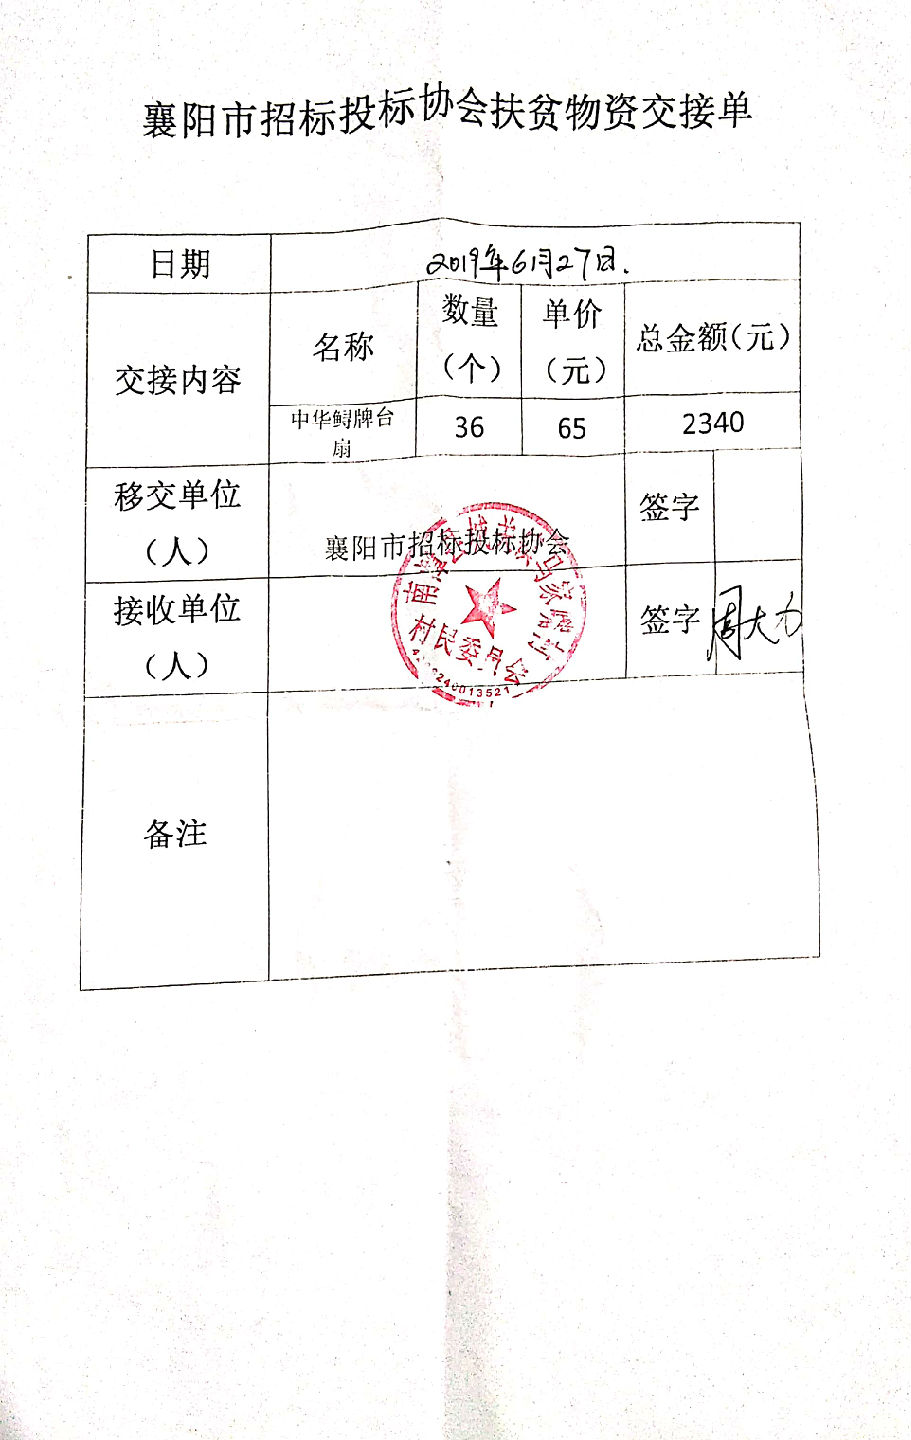 襄阳市招标投标协会扶贫物资交接单
日期 2019年6月27日.
交接内容 名称 数量（个） 单价（元） 总金额（元）
中华鲟牌台扇 36 65 2340
移交单位（人） 襄阳市招标投标协会 签字
接收单位（人） 签字 周大力
南漳县城关镇马家 村
村民委员会
240013521
备注